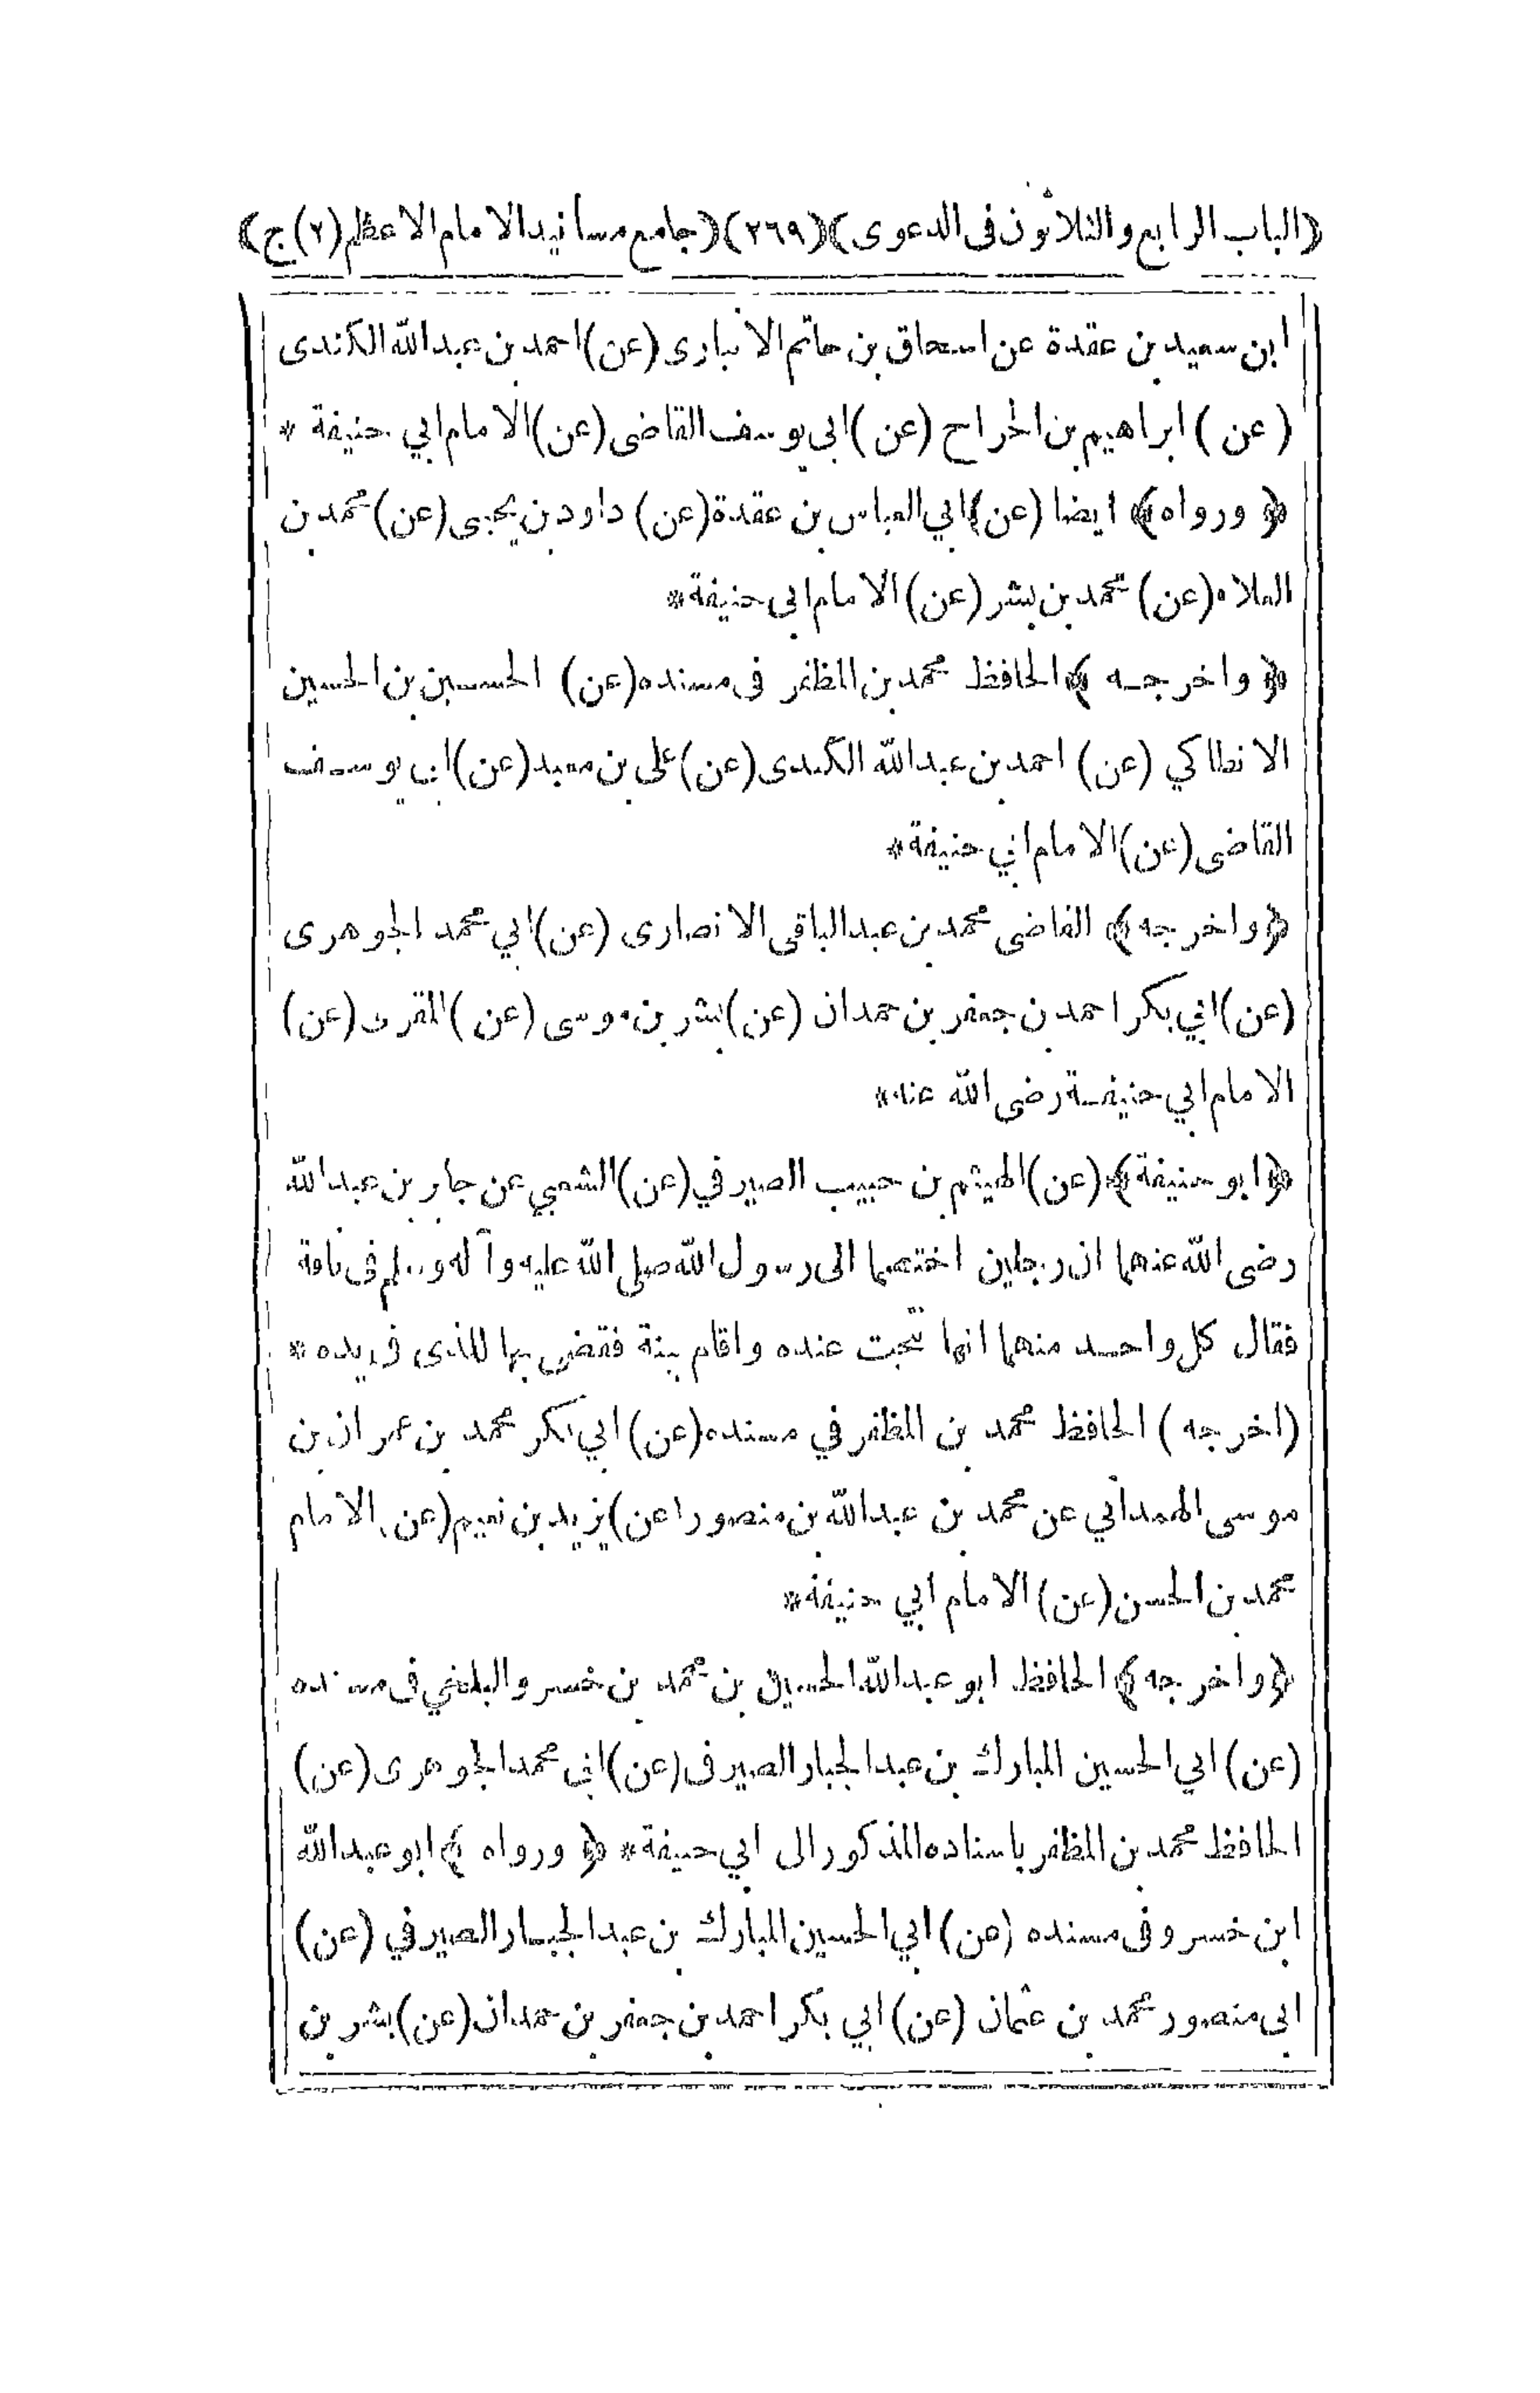 ﴿الباب الرابع والثلاثون فى الدعوى﴾ (٢٦٩) ﴿جامع مسانيد الامام الاعظم (٢) ج﴾
ابن سعيد بن عقدة عن اسحاق بن حاتم الانبارى (عن) احمد بن عبدالله الكندى
(عن) ابراهيم بن الجراح (عن) ابى يوسف القاضى (عن) الامام ابي حنيفة *
﴿ ورواه﴾ ايضا (عن) ابي العباس بن عقدة (عن) داود بن يحيى (عن) محمد بن
العلاء (عن) محمد بن بشر (عن) الامام ابى حنيفة *
﴿ واخرجه ﴾ الحافظ محمد بن المظفر فى مسنده (عن) الحسين بن الحسين
الانطاكي (عن) احمد بن عبدالله الكندى (عن) على بن معبد (عن) ابى يوسف
القاضى (عن) الامام ابي حنيفة *
﴿واخرجه﴾ القاضى محمد بن عبدالباقى الانصارى (عن) ابي محمد الجوهرى
(عن) ابي بكر احمد بن جعفر بن حمدان (عن) بشر بن موسى (عن) المقرى (عن)
الامام ابي حنيفة رضى الله عنه *
﴿ابو حنيفة﴾ (عن) الهيثم بن حبيب الصيرفي (عن) الشعبي عن جابر بن عبدالله
رضى الله عنهما ان رجلين اختصما الى رسول الله صلى الله عليه وآله وسلم فى ناقة
فقال كل واحد منهما انها نتجت عنده واقام بينة فقضى بها للذى فى يده *
(اخرجه ) الحافظ محمد بن المظفر في مسنده (عن) ابي بكر محمد بن عمران بن
موسى الهمداني عن محمد بن عبدالله بن منصور (عن) يزيد بن نعيم (عن) الامام
محمد بن الحسن (عن) الامام ابي حنيفة *
﴿واخرجه﴾ الحافظ ابو عبدالله الحسين بن محمد بن خسرو البلخي فى مسنده
(عن) ابي الحسين المبارك بن عبدالجبار الصيرفى (عن) ابي محمد الجوهرى (عن)
الحافظ محمد بن المظفر باسناده المذكور الى ابي حنيفة * ﴿ ورواه ﴾ ابو عبدالله
ابن خسرو فى مسنده (عن) ابي الحسين المبارك بن عبدالجبار الصيرفي (عن)
ابى منصور محمد بن عثمان (عن) ابي بكر احمد بن جعفر بن حمدان (عن) بشر بن